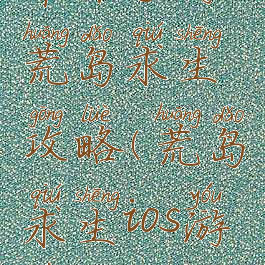 huāng dǎo qiú shēng
荒岛求生
gōng lüè huāng dǎo
攻略(荒岛
qiú shēng yóu
求生ios游